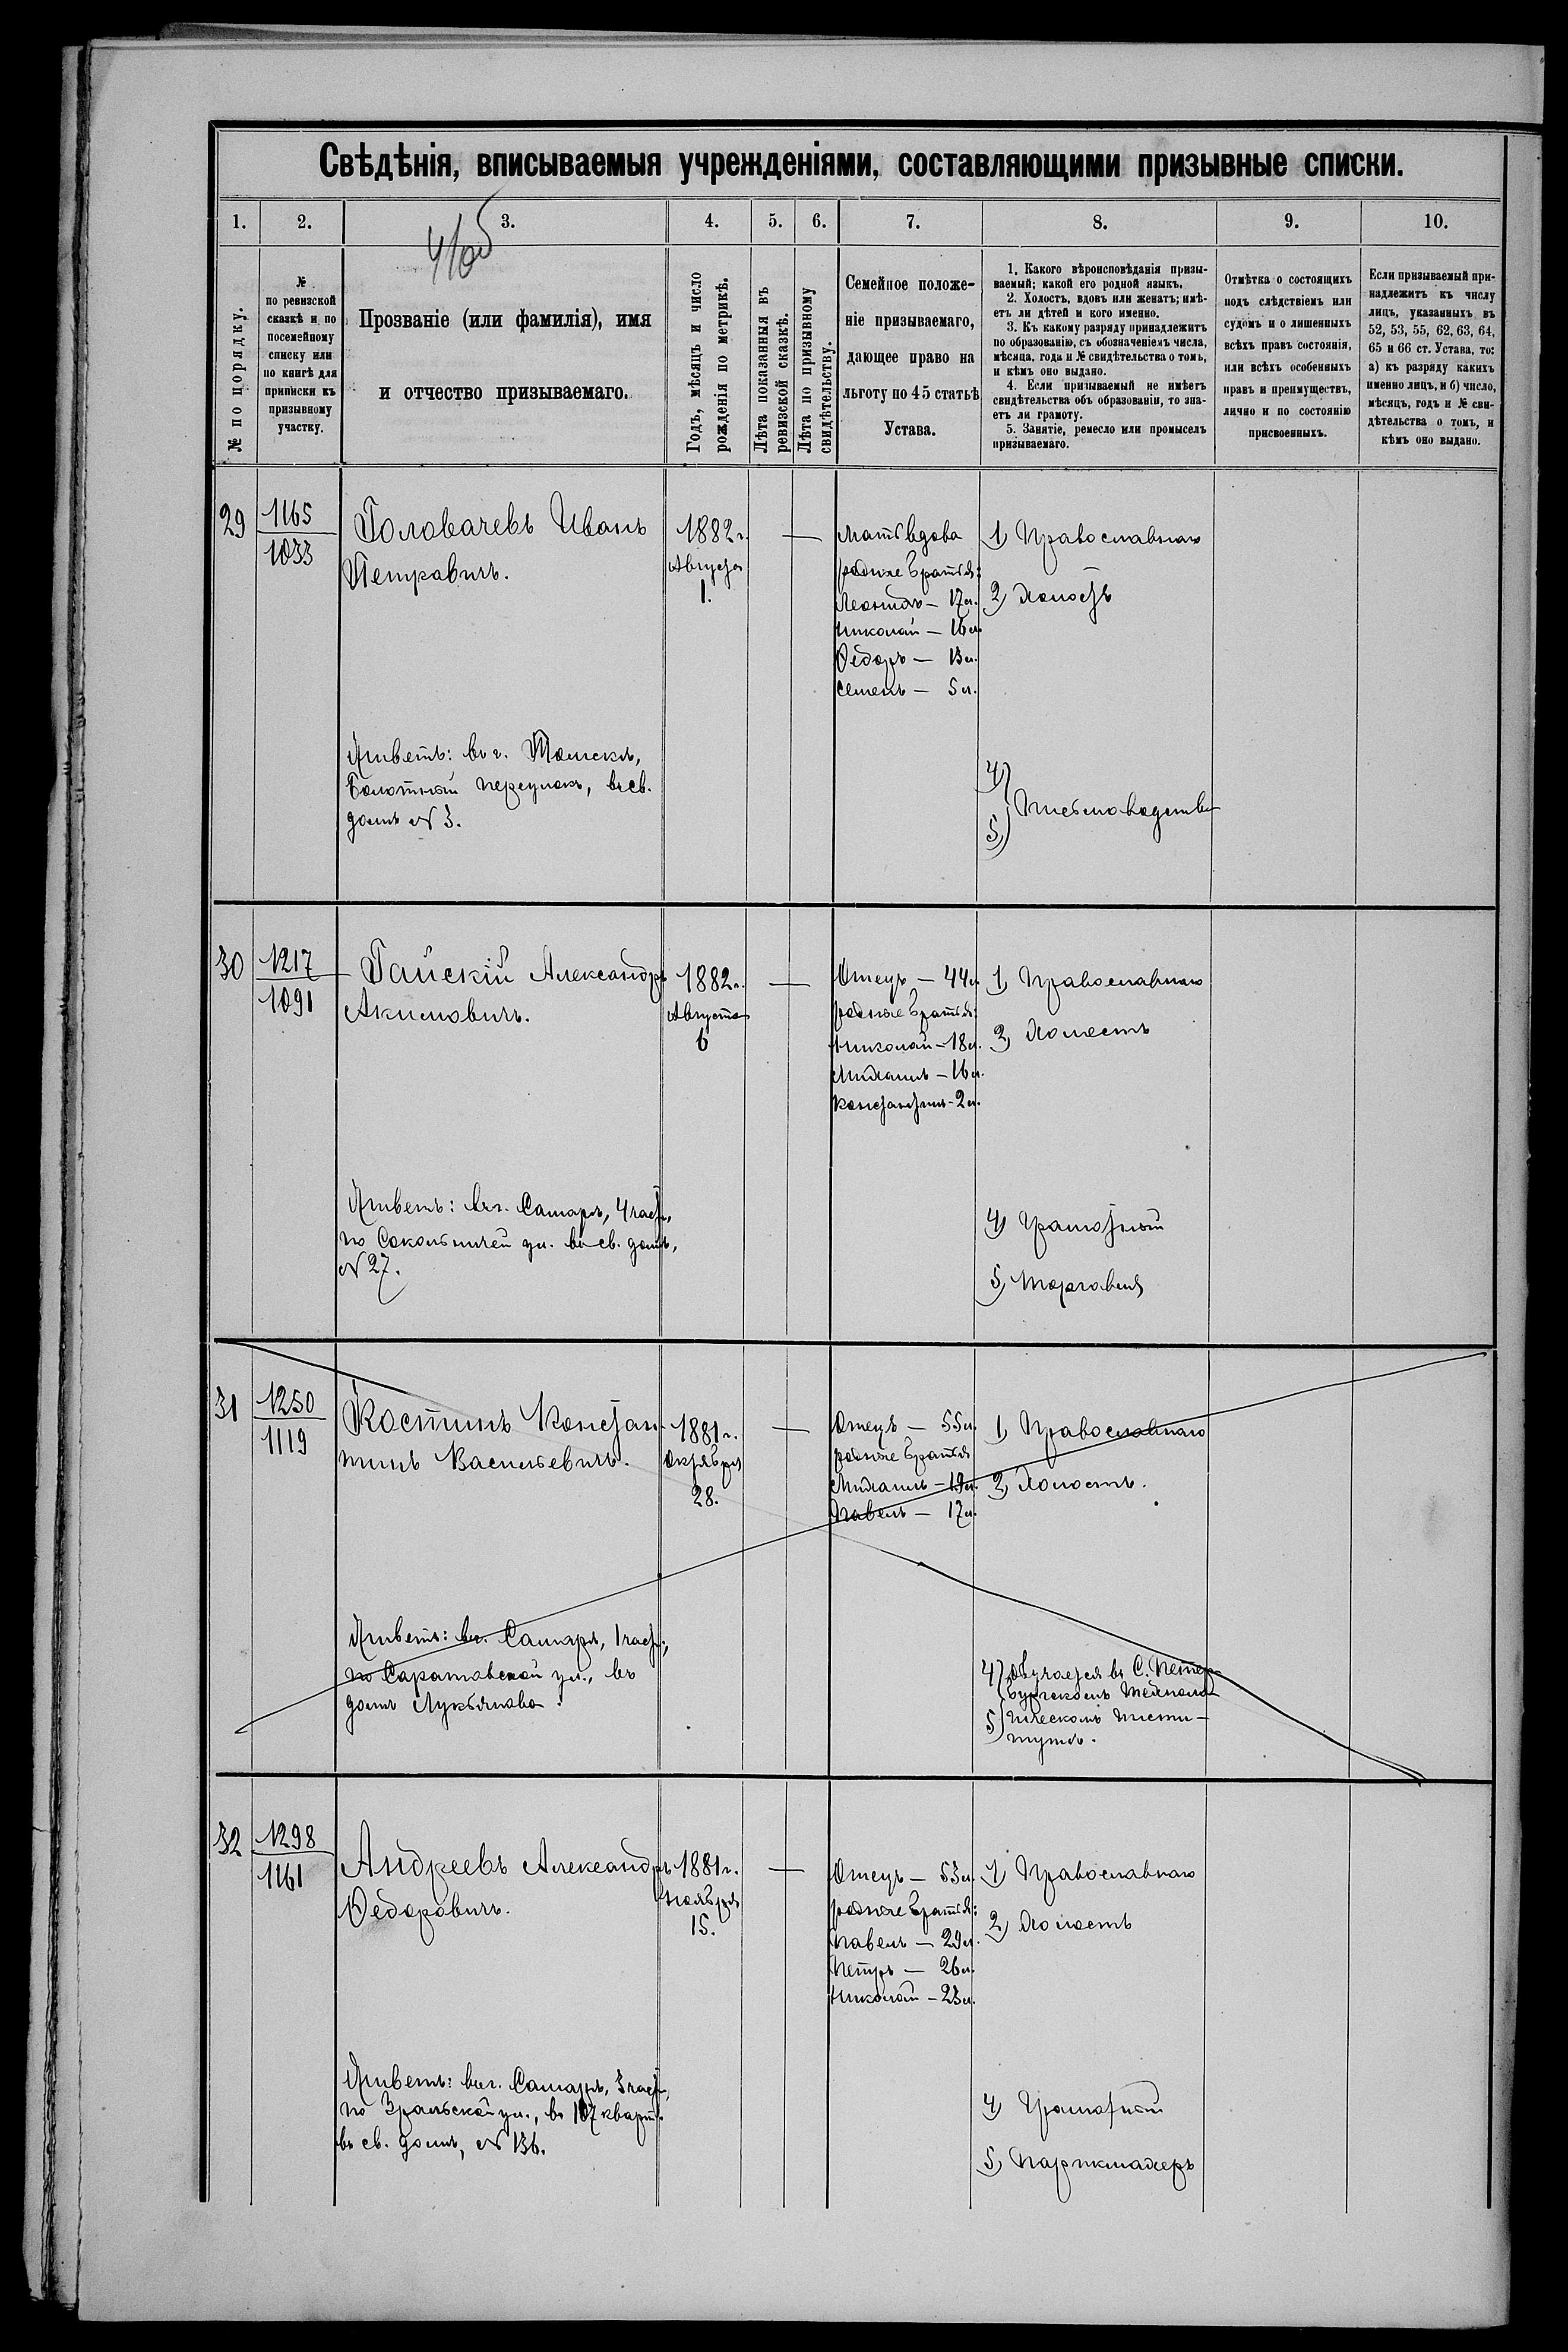 Свѣдѣнія, вписываемыя учрежденіями, составляющими призывные списки.
1. 2. 3. 4. 5. 6. 7. 8. 9. 10.
№ по порядку.
№
по ревизской
сказкѣ и по
посемейному
списку или
по книгѣ для
приписки къ
призывному
участку.
Прозваніе (или фамилія), имя
и отчество призываемаго.
Годъ, мѣсяцъ и число
рожденія по метрикѣ.
Лѣта показанныя въ
ревизской сказкѣ.
Лѣта по призывному
свидѣтельству.
Семейное положе-
ніе призываемаго,
дающее право на
льготу по 45 статьѣ
Устава.
1. Какого вѣроисповѣданія призы-
ваемый; какой его родной языкъ.
2. Холостъ, вдовъ или женатъ; имѣ-
етъ ли дѣтей и кого именно.
3. Къ какому разряду принадлежитъ
по образованію, съ обозначеніемъ числа,
мѣсяца, года и № свидѣтельства о томъ,
и кѣмъ оно выдано.
4. Если призываемый не имѣетъ
свидѣтельства объ образованіи, то зна-
етъ ли грамоту.
5. Занятіе, ремесло или промыселъ
призываемаго.
Отмѣтка о состоящихъ
подъ слѣдствіемъ или
судомъ и о лишенныхъ
всѣхъ правъ состоянія,
или всѣхъ особенныхъ
правъ и преимуществъ,
лично и по состоянію
присвоенныхъ.
Если призываемый при-
надлежитъ къ числу
лицъ, указанныхъ въ
52, 53, 55, 62, 63, 64,
65 и 66 ст. Устава, то:
а) къ разряду какихъ
именно лицъ, и б) число,
мѣсяцъ, годъ и № сви-
дѣтельства о томъ, и
кѣмъ оно выдано.
29
1165
1033
Головачевъ Иванъ
Петровичъ.
1882 г.
Августа
1.
—
Мать вдова
родные братья:
Леонидъ — 17 л.
Николай — 16 л.
Ѳедоръ — 13 л.
Семенъ — 5 л.
1) Православнаго
2) Холостъ
4)
5)
Живетъ: въ г. Томскѣ,
Болотный переулокъ, въ св.
домѣ № 3.
30
1217
1091
Гайскій Александръ
Акимовичъ.
1882 г.
Августа
6
—
Отецъ — 44 л.
родные братья:
Николай — 18 л.
Михаилъ — 16 л.
Константинъ - 2 л.
1) Православнаго
2) Холостъ
4) Грамотный
5) Торговля
Живетъ: въ г. Самарѣ, 4 част.,
по Сокольничей ул. въ св. домѣ,
№ 27.
31
1250
1119
Костинъ Констан-
тинъ Васильевичъ.
1881 г.
Октября
28.
—
Отецъ — 55 л.
родные братья
Михаилъ — 19 л.
Павелъ — 17 л.
1) Православнаго
2) Холостъ.
4) Обучается въ С. Петер-
бургскомъ Техноло-
5) гическомъ Инсти-
тутѣ.
Живетъ: въ г. Самарѣ, 1 част.,
по Саратовской ул., въ
домѣ Лукьянова.
32
1298
1161
Андреевъ Александръ
Ѳедоровичъ.
1881 г.
Ноября
15.
—
Отецъ — 53 л.
родные братья:
Павелъ — 29 л.
Петръ — 26 л.
Николай — 23 л.
1) Православнаго
2) Холостъ
4) Грамотный
5) Парикмахеръ
Живетъ: въ г. Самарѣ, 3 част.,
по Уральской ул., въ 107 кварт.
въ св. домѣ, № 136.